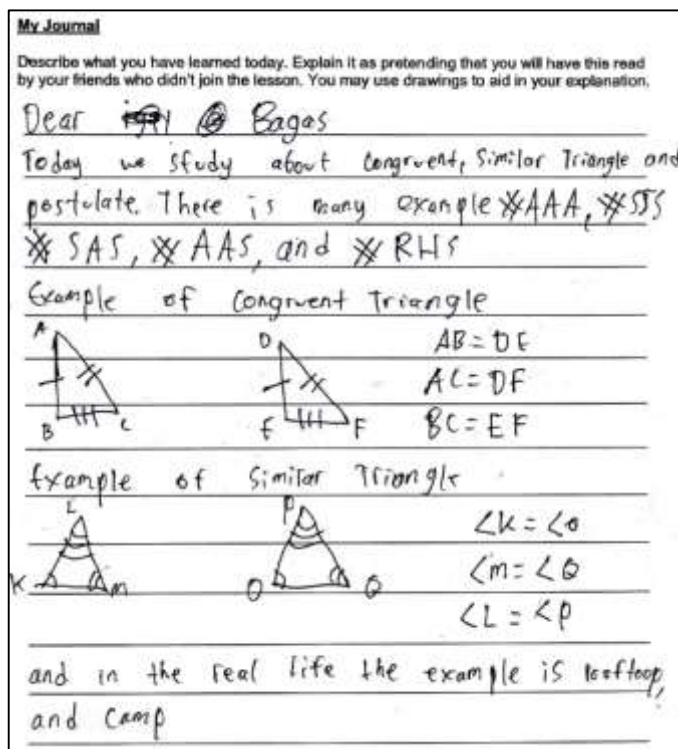 My Journal
Describe what you have learned today. Explain it as pretending that you will have this read
by your friends who didn't join the lesson. You may use drawings to aid in your explanation.
Dear Bagas
Today we study about Congruent, Similar Triangle and
postulate. There is many example AAA, SSS
SAS, AAS, and RHS
Example of Congruent Triangle
A D AB = DE
AC = DF
B C E F BC = EF
Example of Similar Triangle
L P ∠K = ∠O
K M O Q ∠m = ∠Q
∠L = ∠P
and in the real life the example is
and Camp